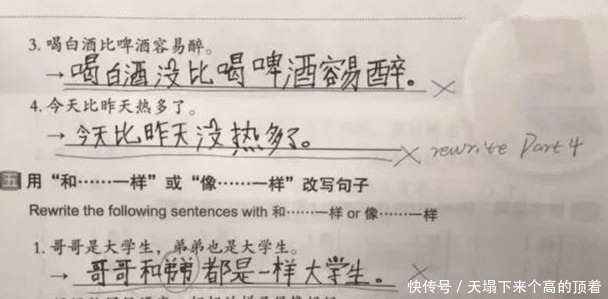 3. 喝白酒比啤酒容易醉。
→ 喝白酒没比喝啤酒容易醉。 ×
4. 今天比昨天热多了。
→ 今天比昨天没热多了。 × rewrite Part 4
五 用“和……一样”或“像……一样”改写句子
Rewrite the following sentences with 和……一样 or 像……一样
1. 哥哥是大学生，弟弟也是大学生。
→ 哥哥和弟弟都是一样大学生。 ×
快传号 / 天塌下来个高的顶着